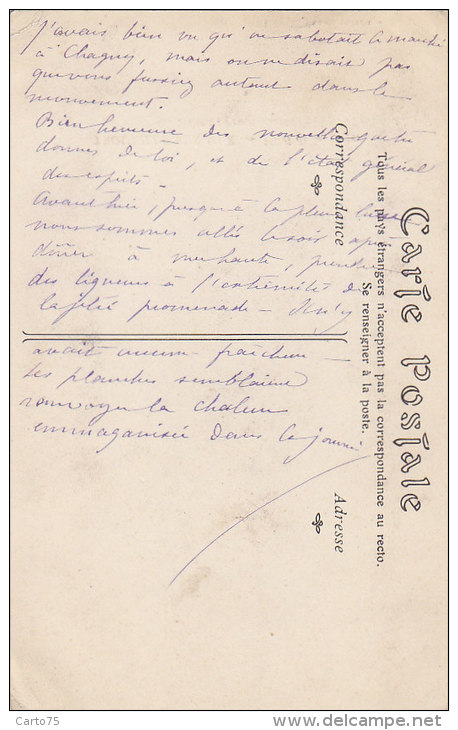 J'avais bien vu qu'on sabotait le marché
à Chagny, mais on ne disait pas
que vous fussiez autant dans le
mouvement.
Bien heureuse des nouvelles que tu
donnes de toi, et de l'état général
des esprits -
Avant hier, presque à la pleine lune
nous sommes allés le soir après
dîner à mer haute, prendre
des liqueurs à l'extrémité de
la jetée promenade - Il n'y
avait aucune fraîcheur -
les planches semblaient
renvoyer la chaleur
emmagasinée dans la journée
Carte Postale
Tous les pays étrangers n'acceptent pas la correspondance au recto.
Se renseigner à la poste.
Correspondance
Adresse
Carto75
www.delcampe.net